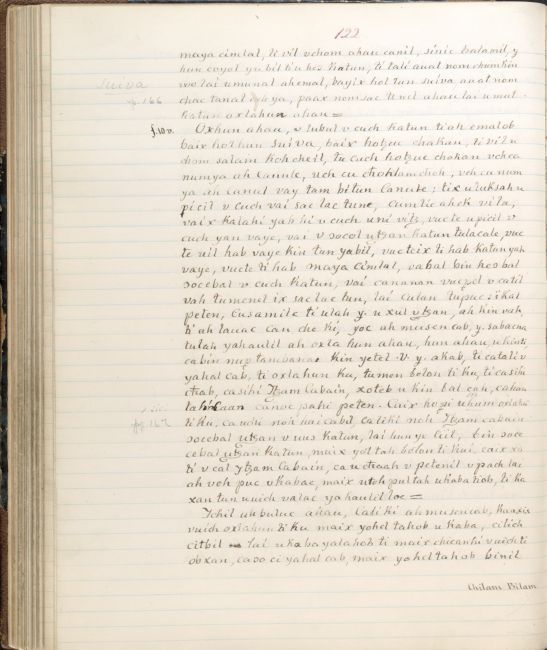 122
maya cimlal, ti vil uchom ahau canil, sinic balamil, y
hun coyol yubil tu hes katun, ti tali auat nom chumbin
wo lai umunal ah emal, bayix hol tun suiva auat nom
suiva
chac tanal
paax nom sac ti uel ahau lai u mut
p. 166
katun oxlahun ahau =
f. 10 v. Oxhun ahau, u lubul u cuch katun ti ah emalob
baix hol hun suiva, baix hotzuc chakan, ti vil u
chom salam koh cheil, tu cuch hotzuc chakan uchca
numya ah Canule, uch cu choktamchoh, uchcu num
ya ah canul vay tam bitun Canule; tix u luksah u
picil u cuch vai sac lac tune, cumlic ahok vila,
vaix kalahi yah hi u cuch uni vitz, vucte u picil u
cuch yan vaye, vai u socol utzan katun tulacale, vuc
te vil hab vaye kin tun yabil, vucteix ti hab katun yah
vaye, vucte ti hab maya cimlal, vabal bin hes bal
socebal u cuch katun, vai cananan
u catil
vah tumenel ix sac lac tun, lai culan tupuczikal
peten, Cusamile ti ulah y. u xul utzan, ah kin vah,
ti ah lauac can che ki, yoc ah musencab, y. sabacna
tulah yahaulil ah oxla hun ahau, hun ahau, u kintz
cabin nup tambanac kin yetel V. y. akab, ti catali v
yahal cab, ti oxlahun ku, tumen bolon ti ku, ti casihi
chab, casihi Ytzam Cabain, xoteb u kin bal cah, cahau
caan canoc pahi peten. Caix hopi
oxlahun
ti ku, ca uchi noh haicabil, ca liki noh Ytzam cabain
p. 167
socebal utzan u vus katun, lai hunye ciil, bin soce
cebal utzan katun, maix yoltah bolon ti kui, caix xo
ti u cal Ytzam Cabain, ca u chaah u petenil u pach lai
ah voh puc ukabae, maix utoh pultah ukabahob, ti ka
xan tun uuich valac yahaulil loe =
Ychil ukbuluc ahau, Caliki ahmusencab, kaxix
vuich oxlahun ti ku maix yohel tahob ukaba, cilich
citbil lai ukaba yalahob ti maix chicanhi vuich ti
ob xan, casoci yahal cab, maix yohel tahob binil
Chilam Bilam